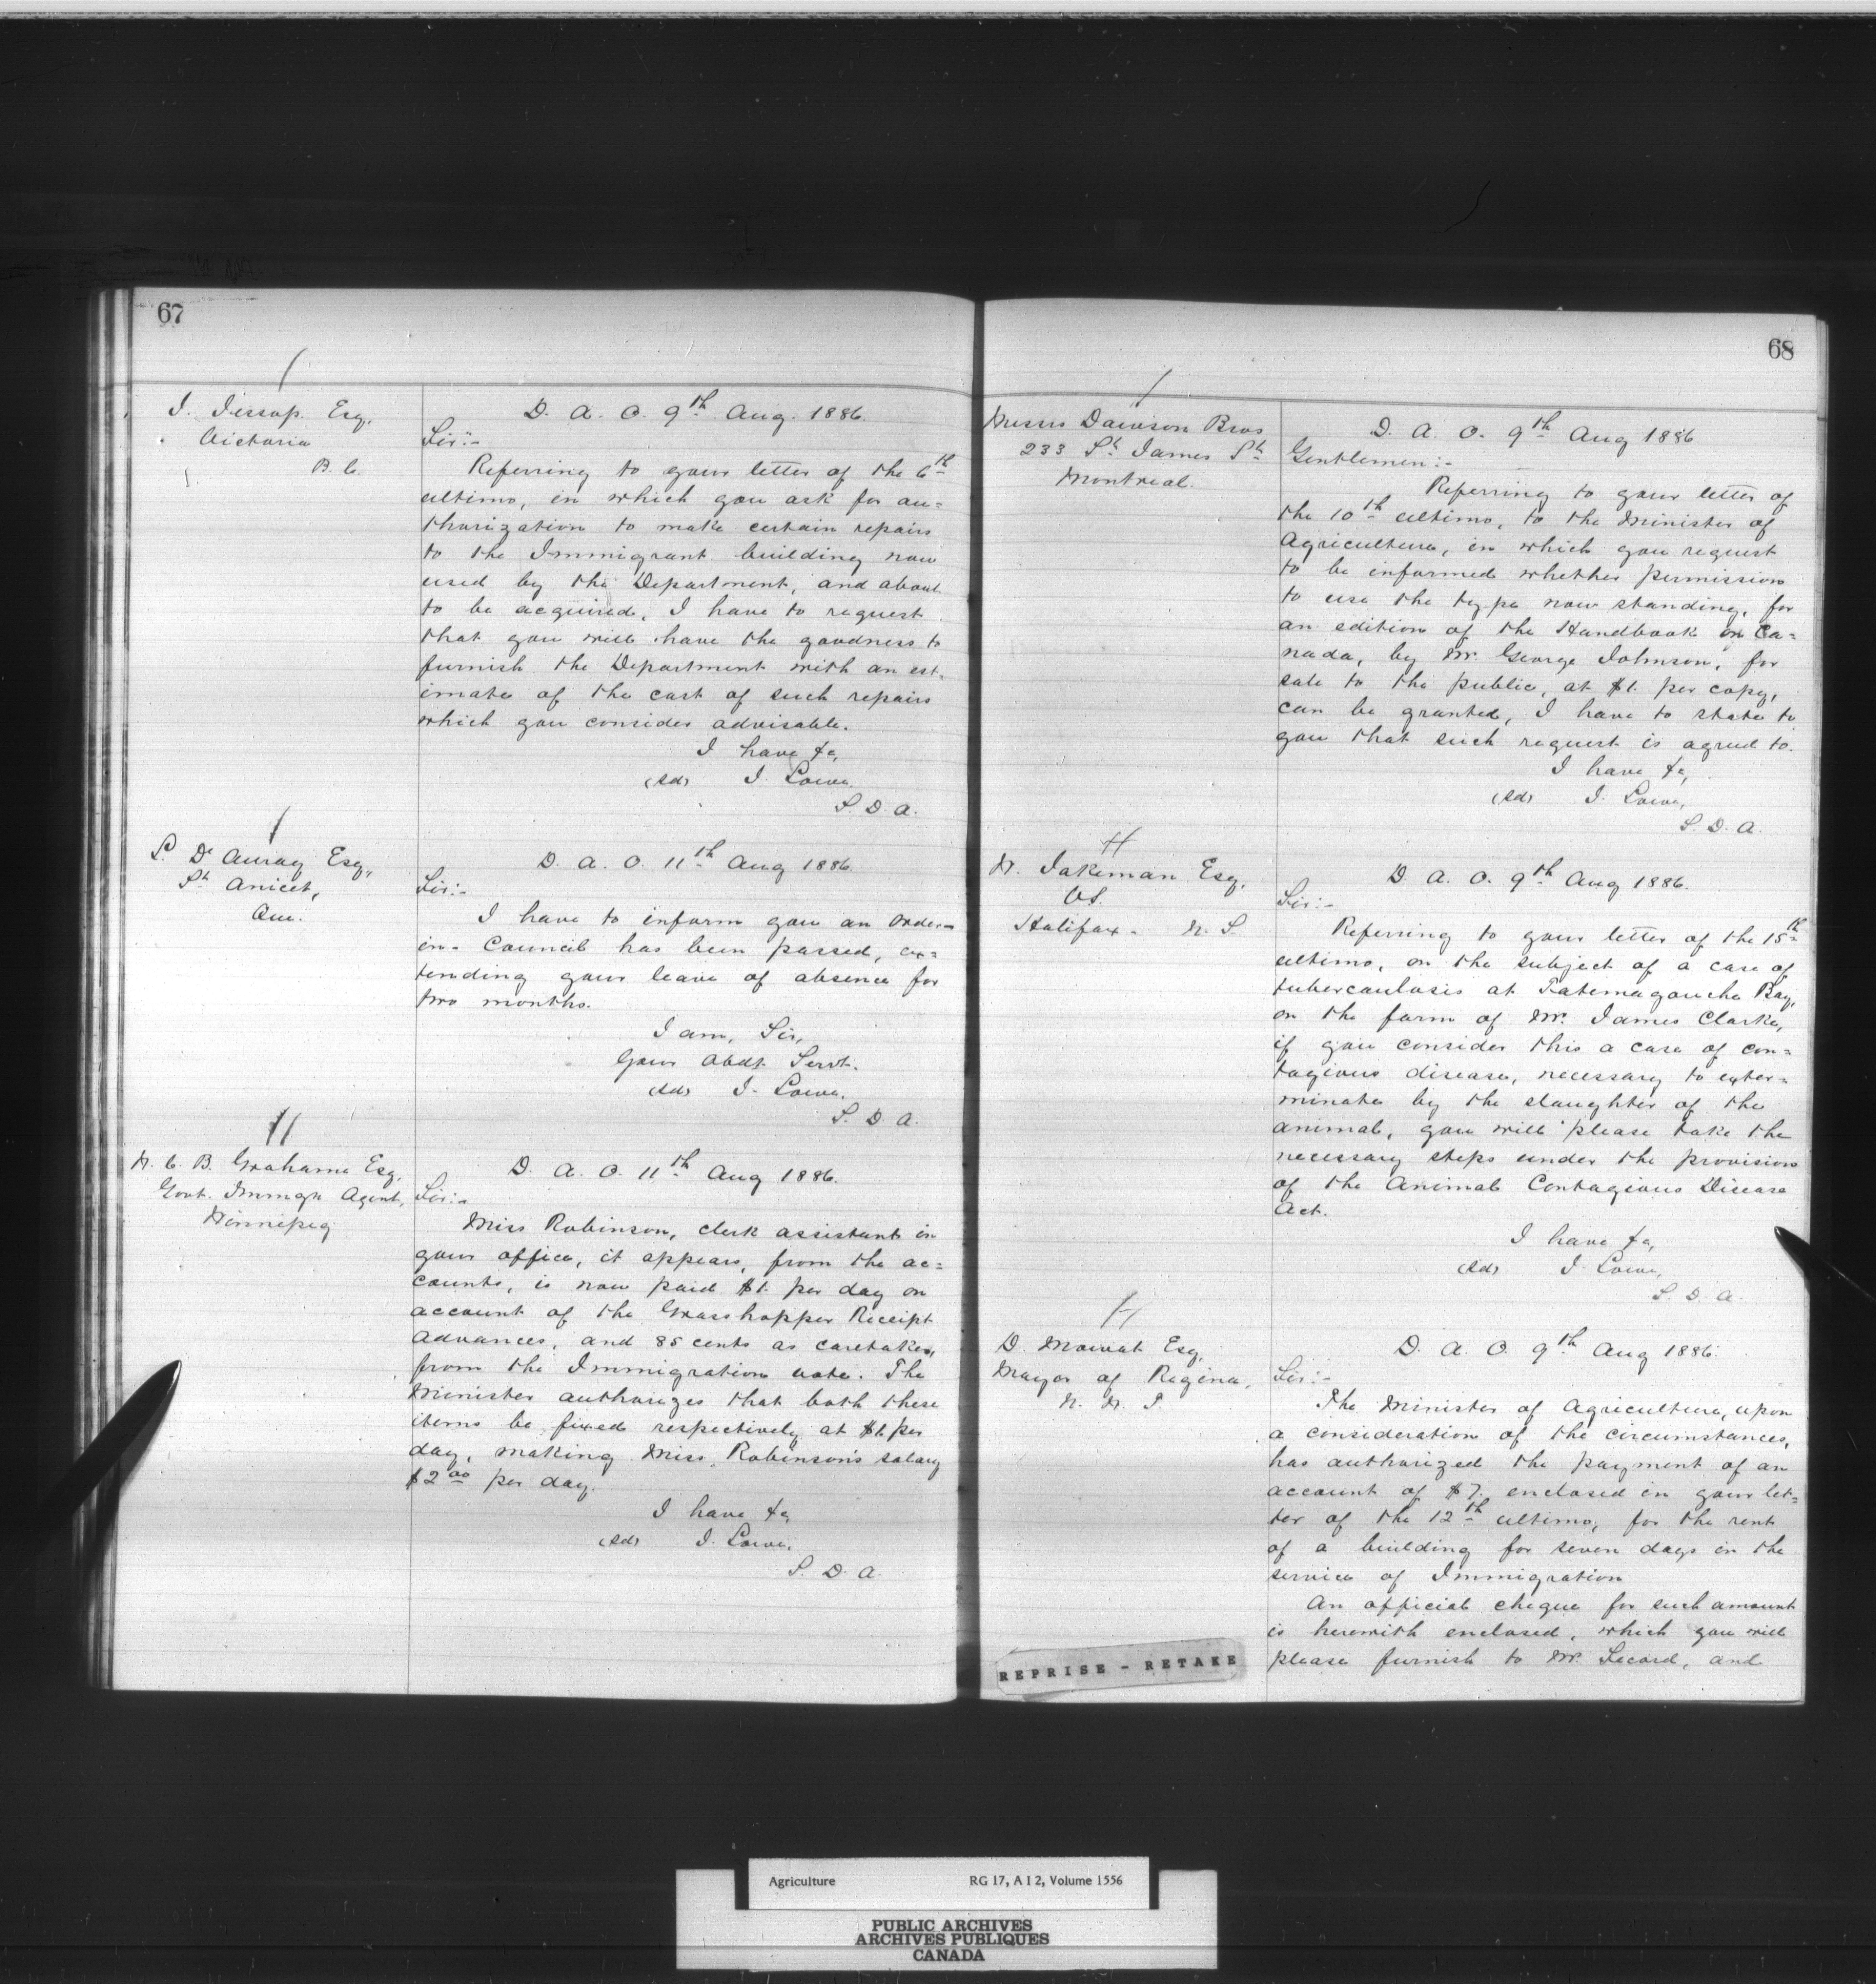 67
J. Jessop Esq,
Victoria
B. C.
D. A. O. 9th Aug. 1886.
Sir:-
Referring to your letter of the 6th
ultimo, in which you ask for au=
thorization to make certain repairs
to the Immigrant building now
used by the Department, and about
to be acquired, I have to request
that you will have the goodness to
furnish the Department with an est-
imate of the cost of such repairs
which you consider advisable.
I have &c,
(Sd) J. Lowe.
S. D. A.
St Anicet,
Que.
D. A. O. 11th Aug 1886.
Sir:-
I have to inform you an Order-
in-Council has been passed, ex=
tending your leave of absence for
two months.
I am, Sir,
Your Obdt Servt.
(Sd) J. Lowe.
S. D. A.
W. C. B. Grahame Esq,
Govt. Immgn Agent,
Winnipeg
D. A. O. 11th Aug 1886.
Sir:-
Miss Robinson, clerk assistant in
your office, it appears, from the ac=
counts, is now paid $1. per day on
account of the Grasshopper Receipt
Advances, and 85 cents as caretaker,
from the Immigration vote. The
Minister authorizes that both these
items be fixed respectively at $1. per
day, making Miss Robinson's salary
$2.00 per day.
I have &c,
(Sd) J. Lowe.
S. D. A.
68
Messrs Dawson Bros
233 St James St
Montreal.
D. A. O. 9th Aug 1886
Gentlemen:-
Referring to your letter of
the 10th ultimo, to the Minister of
Agriculture, in which you request
to be informed whether permission
to use the type now standing, for
an edition of the Handbook on Ca=
nada, by Mr. George Johnson, for
sale to the public, at $1. per copy,
can be granted, I have to state to
you that such request is agreed to.
I have &c,
(Sd) J. Lowe,
S. D. A.
W. Jakeman Esq,
V.S.
Halifax - N. S.
D. A. O. 9th Aug 1886.
Sir:-
Referring to your letter of the 15th
ultimo, on the subject of a case of
tubercaulosis at Tatemagouche Bay,
on the farm of Mr. James Clarke,
if you consider this a case of con=
tagious disease, necessary to exter=
minate by the slaughter of the
animal, you will please take the
necessary steps under the provision
of the Animal Contagious Disease
Act.
I have &c,
(Sd) J. Lowe,
S. D. A.
D. Mowat Esq,
Mayor of Regina,
N. W. T.
D. A. O. 9th Aug 1886.
Sir:-
The Minister of Agriculture, upon
a consideration of the circumstances,
has authorized the payment of an
account of $7. enclosed in your let=
ter of the 12th ultimo, for the rent
of a building for seven days in the
service of Immigration
An official cheque for such amount
is herewith enclosed, which you will
please furnish to Mr. Secord, and
REPRISE - RETAKE
Agriculture RG 17, A I 2, Volume 1556
PUBLIC ARCHIVES
ARCHIVES PUBLIQUES
CANADA